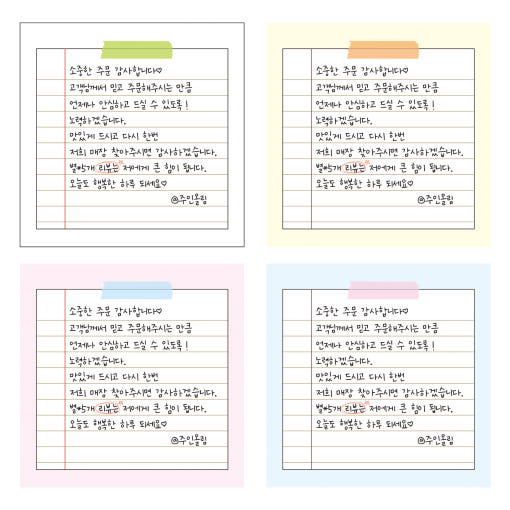 소중한 주문 감사합니다♡
고객님께서 믿고 주문해주시는 만큼
언제나 안심하고 드실 수 있도록!
노력하겠습니다.
맛있게 드시고 다시 한번
저희 매장 찾아주시면 감사하겠습니다.
별★5개 리뷰는 저에게 큰 힘이 됩니다.
오늘도 행복한 하루 되세요♡
@주인올림
소중한 주문 감사합니다♡
고객님께서 믿고 주문해주시는 만큼
언제나 안심하고 드실 수 있도록!
노력하겠습니다.
맛있게 드시고 다시 한번
저희 매장 찾아주시면 감사하겠습니다.
별★5개 리뷰는 저에게 큰 힘이 됩니다.
오늘도 행복한 하루 되세요♡
@주인올림
소중한 주문 감사합니다♡
고객님께서 믿고 주문해주시는 만큼
언제나 안심하고 드실 수 있도록!
노력하겠습니다.
맛있게 드시고 다시 한번
저희 매장 찾아주시면 감사하겠습니다.
별★5개 리뷰는 저에게 큰 힘이 됩니다.
오늘도 행복한 하루 되세요♡
@주인올림
소중한 주문 감사합니다♡
고객님께서 믿고 주문해주시는 만큼
언제나 안심하고 드실 수 있도록!
노력하겠습니다.
맛있게 드시고 다시 한번
저희 매장 찾아주시면 감사하겠습니다.
별★5개 리뷰는 저에게 큰 힘이 됩니다.
오늘도 행복한 하루 되세요♡
@주인올림